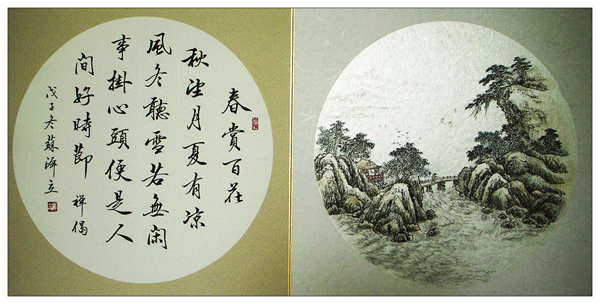 春賞百花
秋望月夏有凉
風冬聽雪若無閑
事掛心頭便是人
間好時節 禪偈
戊子冬蘇